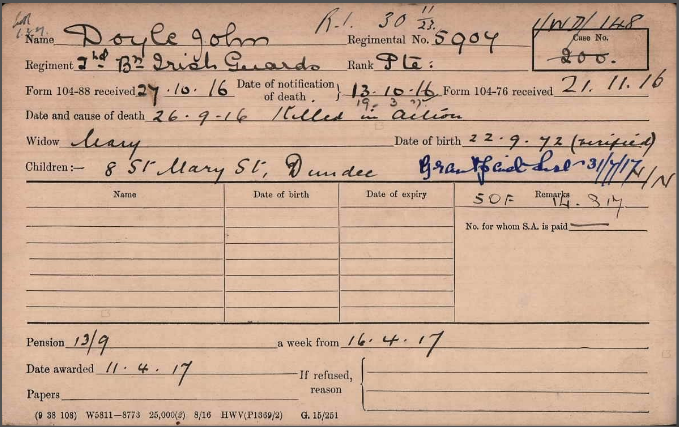 R.1. 30 11/23. 1/WD/148
Name Doyle John Regimental No. 5907 Case No. 200.
Regiment 2nd Bn Irish Guards Rank Pte:
Form 104-88 received 27.10.16 Date of notification of death. } 13.10.16 Form 104-76 received 21.11.16
19. 3
Date and cause of death 26-9-16 Killed in action
Widow Mary Date of birth 22.9.72 (verified)
Children:— 8 St Mary St, Dundee Grant paid 31/7/17 H/N
Name Date of birth Date of expiry Remarks
SOF 14.3.17
No. for whom S.A. is paid
Pension 13/9 a week from 16.4.17
Date awarded 11.4.17
If refused, reason
Papers
(9 38 108) W5811—8773 25,000(2) 8/16 HWV(P1369/2) G. 15/251